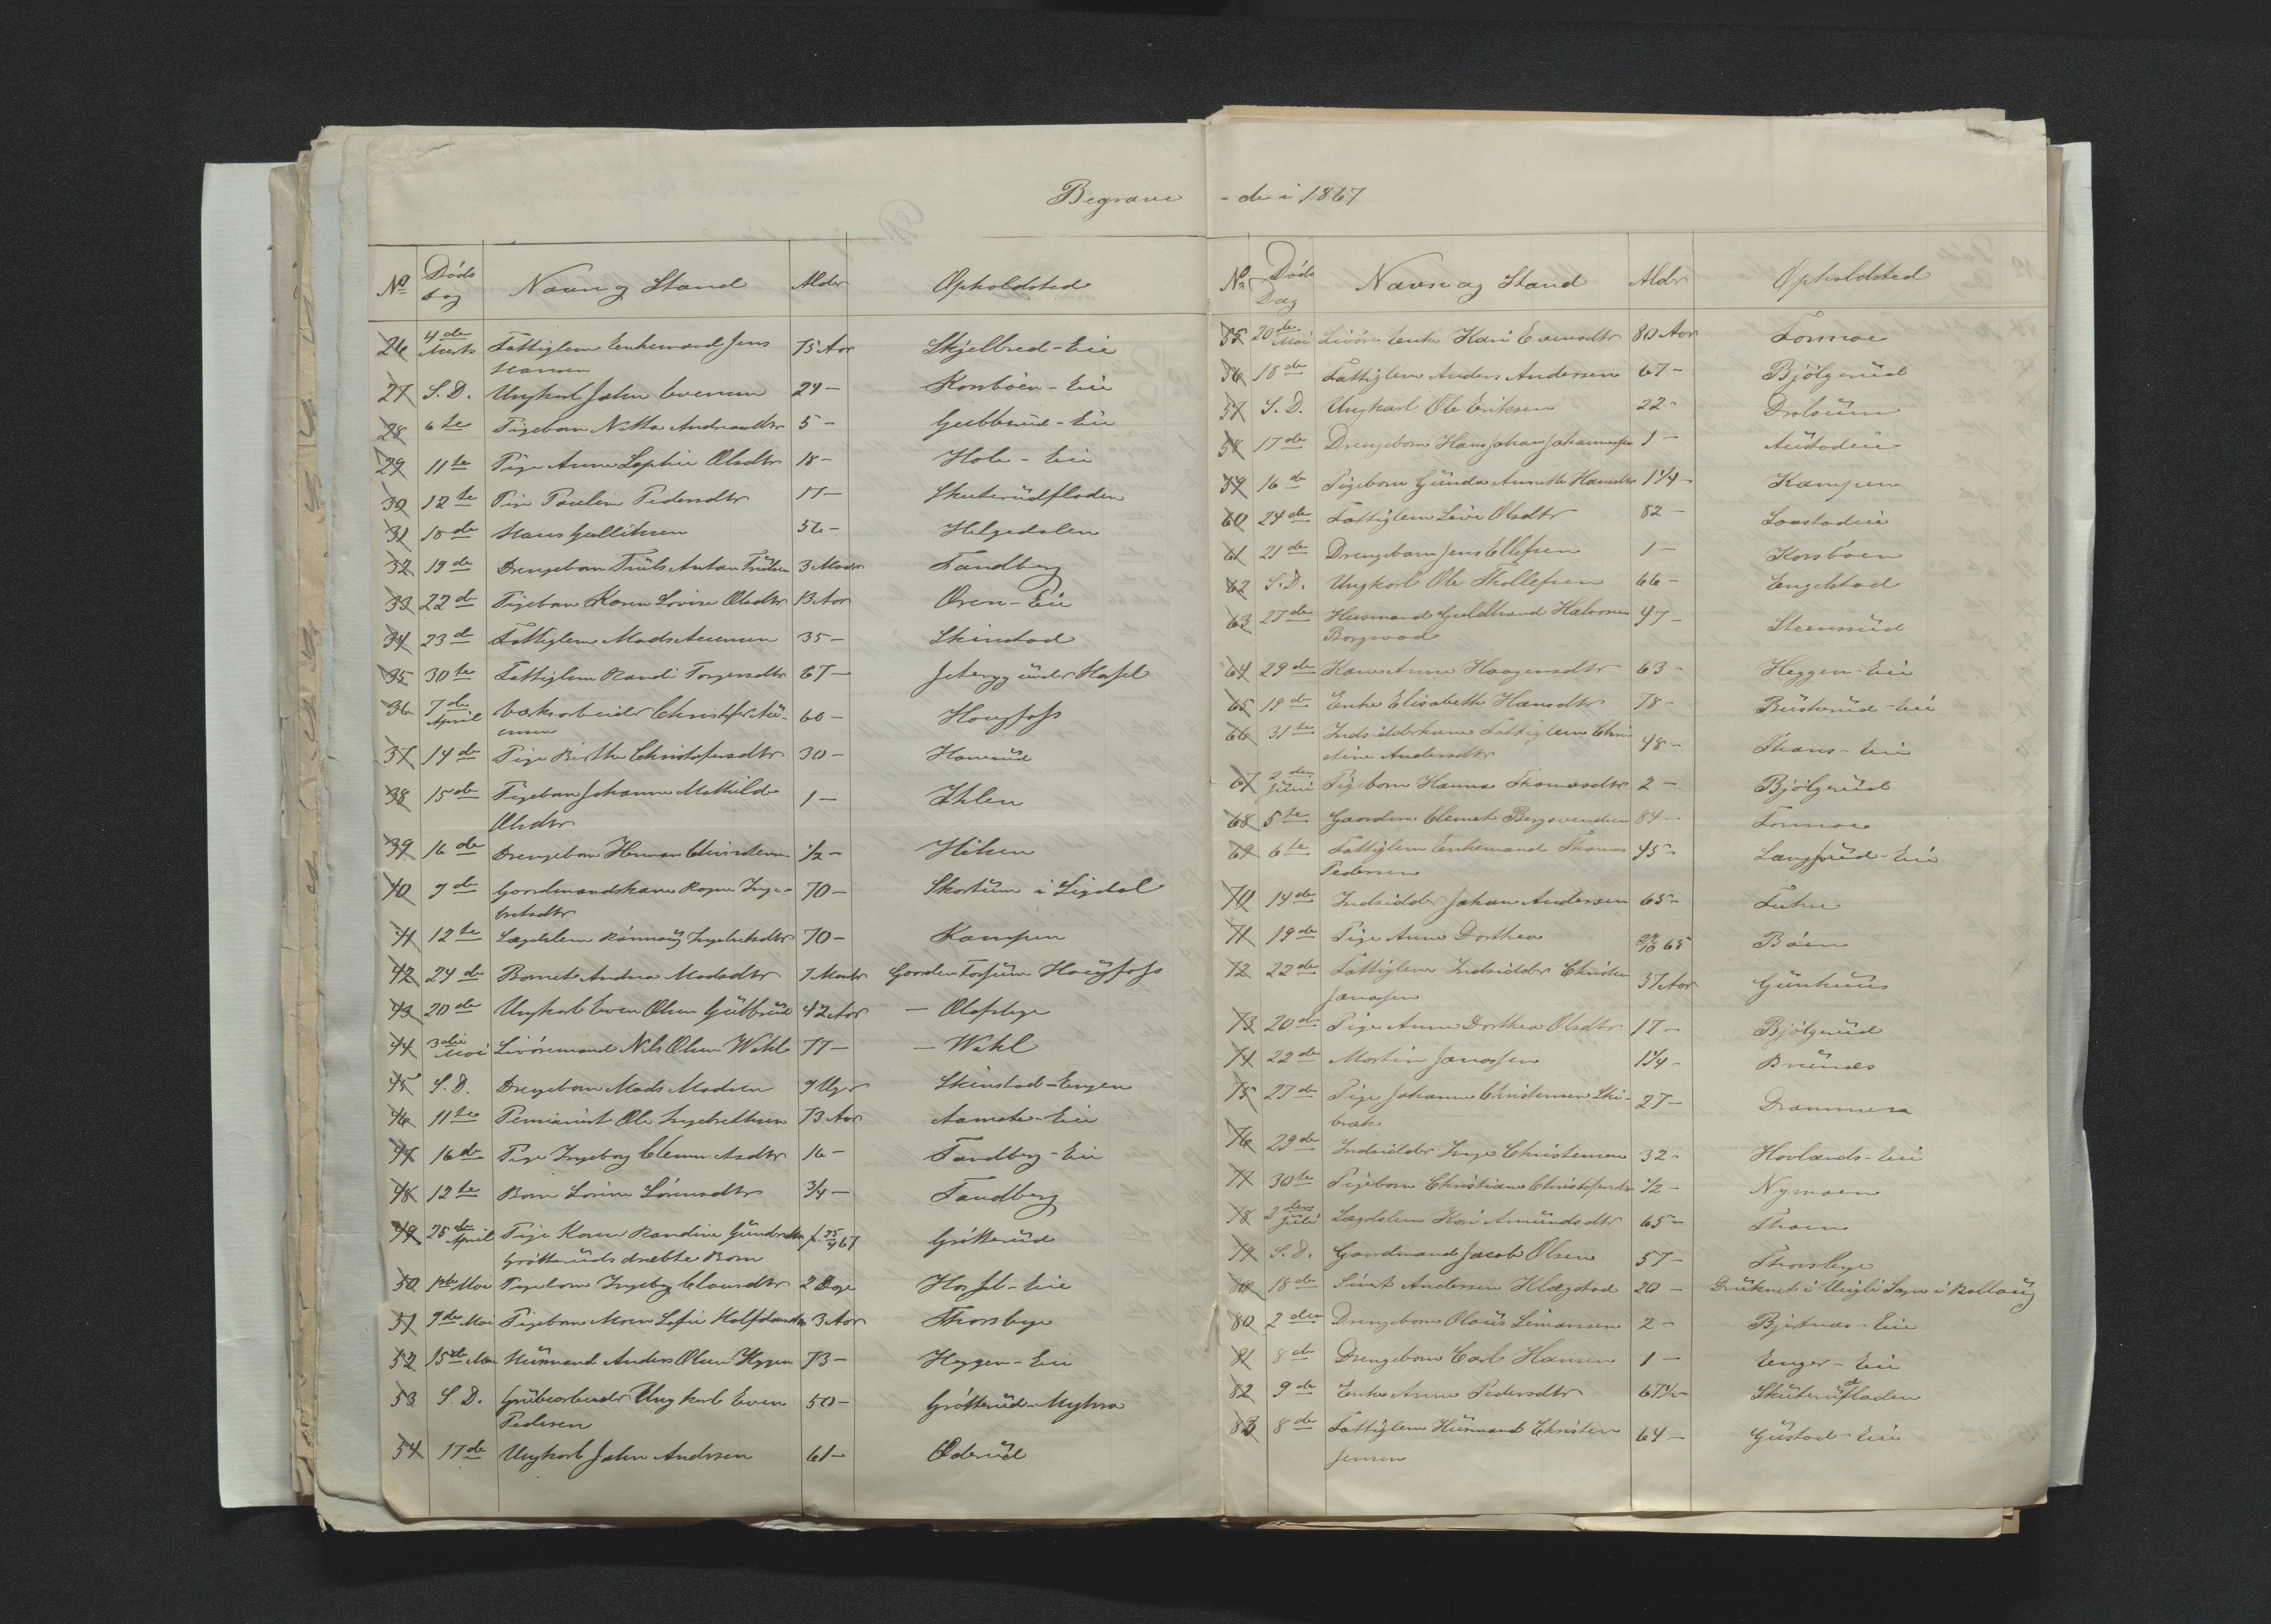 Begrave - de i 1867
No Døds dag Navn og Stand Alder Opholdsted
26 4de Marts Fattiglem Enkemand Jens 75 Aar Skjelbred-Eie
Hansen
27 S. D. Ungkarl John Evensen 24 - Korsbøen - Eie
28 6te Pigebarn Netta Andreasdtr 5 - Gubberud - Eie
29 11te Pige Anne Sophie Olsdtr 18 - Hole - Eie
30 12te Pige Pauline Pedersdtr 17 - Skuterüdfladen
31 18de Hans Gulliksen 52 - Helgedalen
32 19de Drengebarn Truls Anton Trulsen 3 Maadr Tandberg
33 22de Pigebarn Karen Lovise Olsdtr 13 Aar Øren - Eie
34 23de Fattiglem Mads Amundsen 35 - Skinstad
35 30te Fattiglem Randi Torgersdtr 67 - under Hassel
36 7de April Værksarbeider Christofer 60 - Hougfoss
37 14de Pige Birthe Christofersdtr 30 - Hanerüd
38 15de Pigebarn Johanne Mathilde 1 - Ihlen
Olsdtr
39 16de Drengebarn Herman Christensen 1/2 - Hilsen
40 9de Gaardmandskane Ragne Inge- 70 - Skartum i Sigdal
bretsdtr
41 12te Lægdslem Rönnaug Ingebretsdtr 70 - Kampen
42 24de Barnet Andrea Madsdtr 7 Maadr Gaarden Fossum Hougfoss
43 20de Ungkarl Even Olsen Gubberüd 42 Aar - Olafsbye
44 3die Mai Livöremand Nils Olsen Wahl 77 - - Wahl
45 S. D. Drengebarn Mads Madsen 9 Uger Skinstad-Engen
46 11te Pensionist Ole Ingebrethsen 73 Aar Aamots-Eie
47 16de Pige Ingeborg Clemmetsdtr 16 - Tandberg-Eie
48 12te Barn Lovise Sörensdtr 3/4 - Tandberg
49 25de April Pige Karen Randine Gundersdtr f. 25/4 67 Gröterüd
Gröterüds dræbte Barn
50 1ste Mai Pigebarn Ingeborg Clausdtr 2 Dage Hassel-Eie
51 9de Mai Pigebarn Maren Sofie Halfdansdtr 3 Aar Thorsbye
52 15de Mai Husmand Anders Olsen Heggen 73 - Heggen-Eie
53 S. D. Grubearbeider Ungkarl Even 50 - Gröterud-Myhra
Pedersen
54 17de Ungkarl John Andersen 61 - Öderüd
No Døds Dag Navn og Stand Alder Opholdsted
55 20de Mai Livörs Enke Kari Evensdtr 80 Aar Formoe
56 18de Fattiglem Anders Andersen 67 - Bjölgerüd
57 S. D. Ungkarl Ole Eriksen 22 - Drolsüm
58 17de Drengebarn Hans Johan Johannesen 1 -
59 16de Pigebarn Günda Annette Hansdtr 1 1/4 - Kampen
60 24de Fattiglem Live Olsdtr 82 -
61 21de Drengebarn Jens Ellefsen 1 - Korsböen
62 S. D. Ungkarl Ole Thollefsen 66 - Engelstad
63 27de Husmand Guldbrand Halvorsen 47 - Steensrüd
64 29de Kane Anne Haagensdtr 63 - Heggen-Eie
65 19de Enke Elisabeth Hansdtr 78 - Büskerud-Eie
66 31te Indsidderkane Fattiglem Chri- 48 - Thans-Eie
stine Andersdtr
67 2den Juni Pigebarn Hanna Thomasdtr 2 - Bjölgerüd
68 5te Gaardm. Clemet Bergsvendsen 84 - Formoe
69 6te Fattiglem Enkemand Thomas 45 - Langerüd-Eie
Pedersen
70 14de Indsidder Johan Andersen 65 -
71 19de Pige Anne Dorthea 65 Böen
72 22de Fattiglem Indsidder Christen 37 Aar Günhuus
Janassen
73 20de Pige Anne Dorthea Olsdtr 17 - Bjölgerüd
74 22de Martin Janassen 1 1/4 - Brünæs
75 27de Pige Johanne Christensen Ski- 27 - Drammen
bræk
76 29de Indsidder Inge Christensen 32 - Hovlands-Eie
77 30te Pigebarn Christiane Christofersdtr 1/2 - Nymoen
78 2den Juli Lægdslem Kari Amündsdtr 65 - Thoen
79 S. D. Gaardmand Jacob Olsen 57 - Thorsbye
80 18de Andersen 20 - Druknet i
80 2den Drengebarn Olaüs Simensen 2 - Bjertnæs-Eie
81 8de Drengebarn Carl Hansen 1 - Enger-Eie
82 9de Enke Anne Pedersdtr 67 1/2 - Skuterüdfladen
83 8de Fattiglem Husmand Christen 64 - Güstad-Eie
Jensen